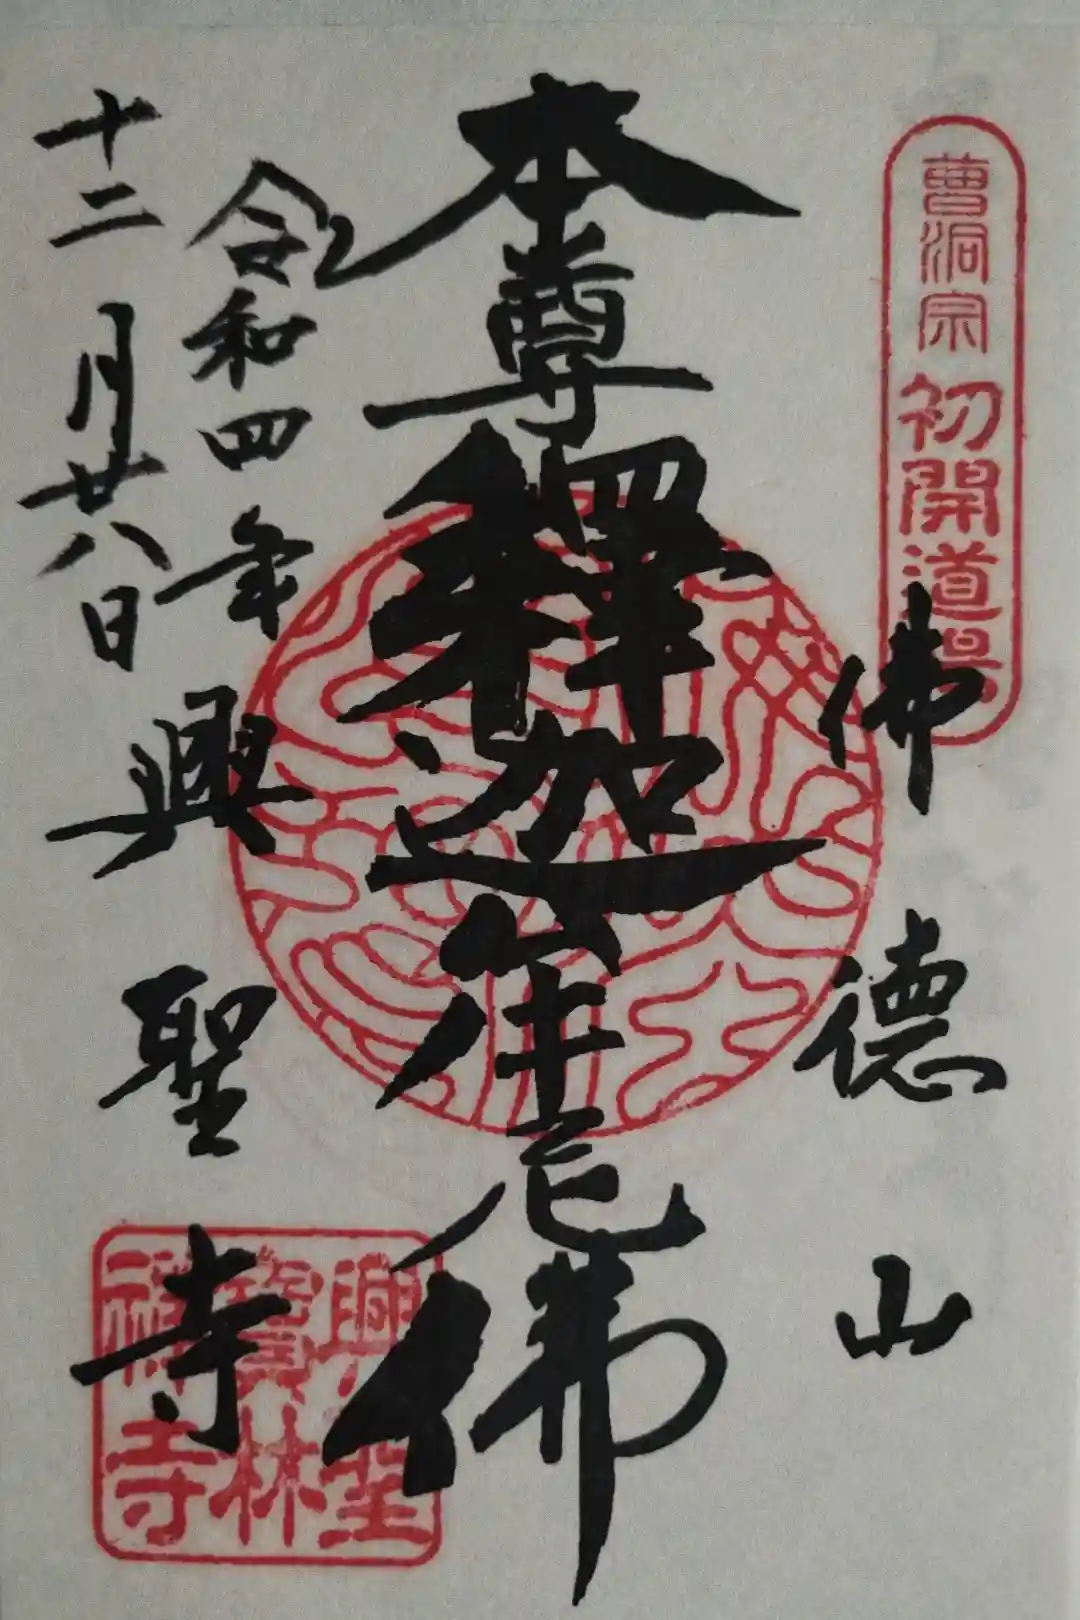 曹洞宗
初開道場
佛德山
本尊釋迦牟尼佛
令和四年
十二月廿八日
興聖寺
興聖
寶林
禅寺